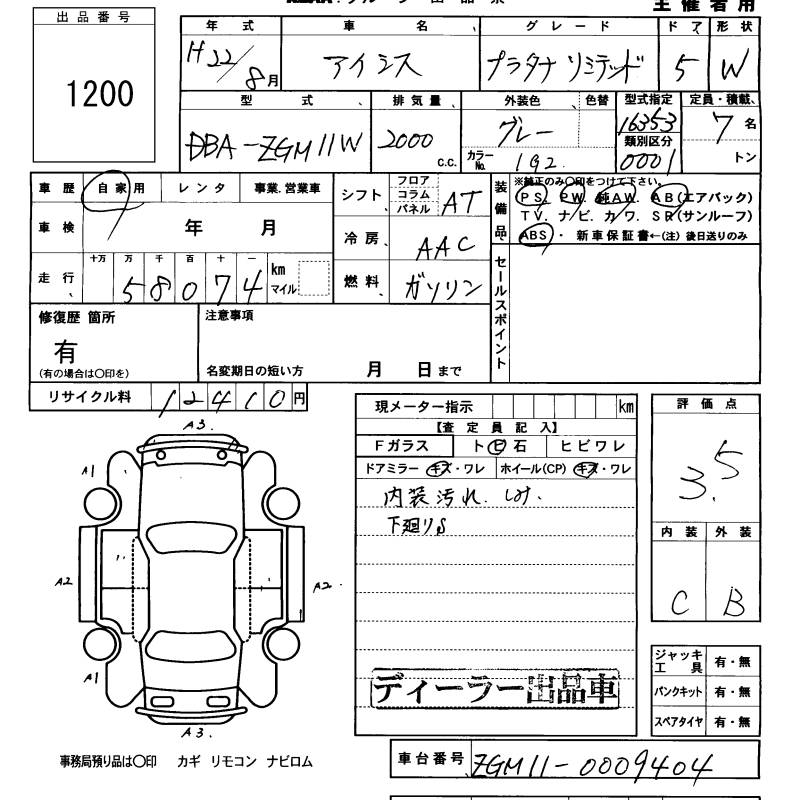 主催者用
出品番号
1200
年式 車名 グレード ドア 形状
H22/8月 アイシス プラタナ リミテッド 5 W
型式 排気量 外装色 色替 型式指定 定員・積載
DBA-ZGM11W 2000 c.c. グレー カラーNo. 1G2 16353 類別区分 0001 7名 トン
車歴 自家用 レンタ 事業.営業車
シフト フロア コラム パネル AT
装備品 ※純正のみ〇印をつけて下さい。
PS. PW. 純AW. AB(エアバック)
TV. ナビ. カワ. SR(サンルーフ)
ABS・新車保証書←(注)後日送りのみ
車検 年 月
冷房 AAC
走行 十万 万 千 百 十 一
58074 km マイル
燃料 ガソリン
セールスポイント
修復歴 箇所 注意事項
有
(有の場合は〇印を) 名変期日の短い方 月 日まで
リサイクル料 12410円
現メーター指示 km
評価点
3.5
【査定員記入】
Fガラス トビ石 ヒビワレ
ドアミラー キズ・ワレ ホイール(CP) キズ・ワレ
内装汚れ. しみ.
下廻りS
内装 外装
C B
A3.
A1
A2 A2.
A1
A3.
ジャッキ工具 有・無
パンクキット 有・無
スペアタイヤ 有・無
ディーラー出品車
事務局預り品は〇印 カギ リモコン ナビロム
車台番号 ZGM11-0009404